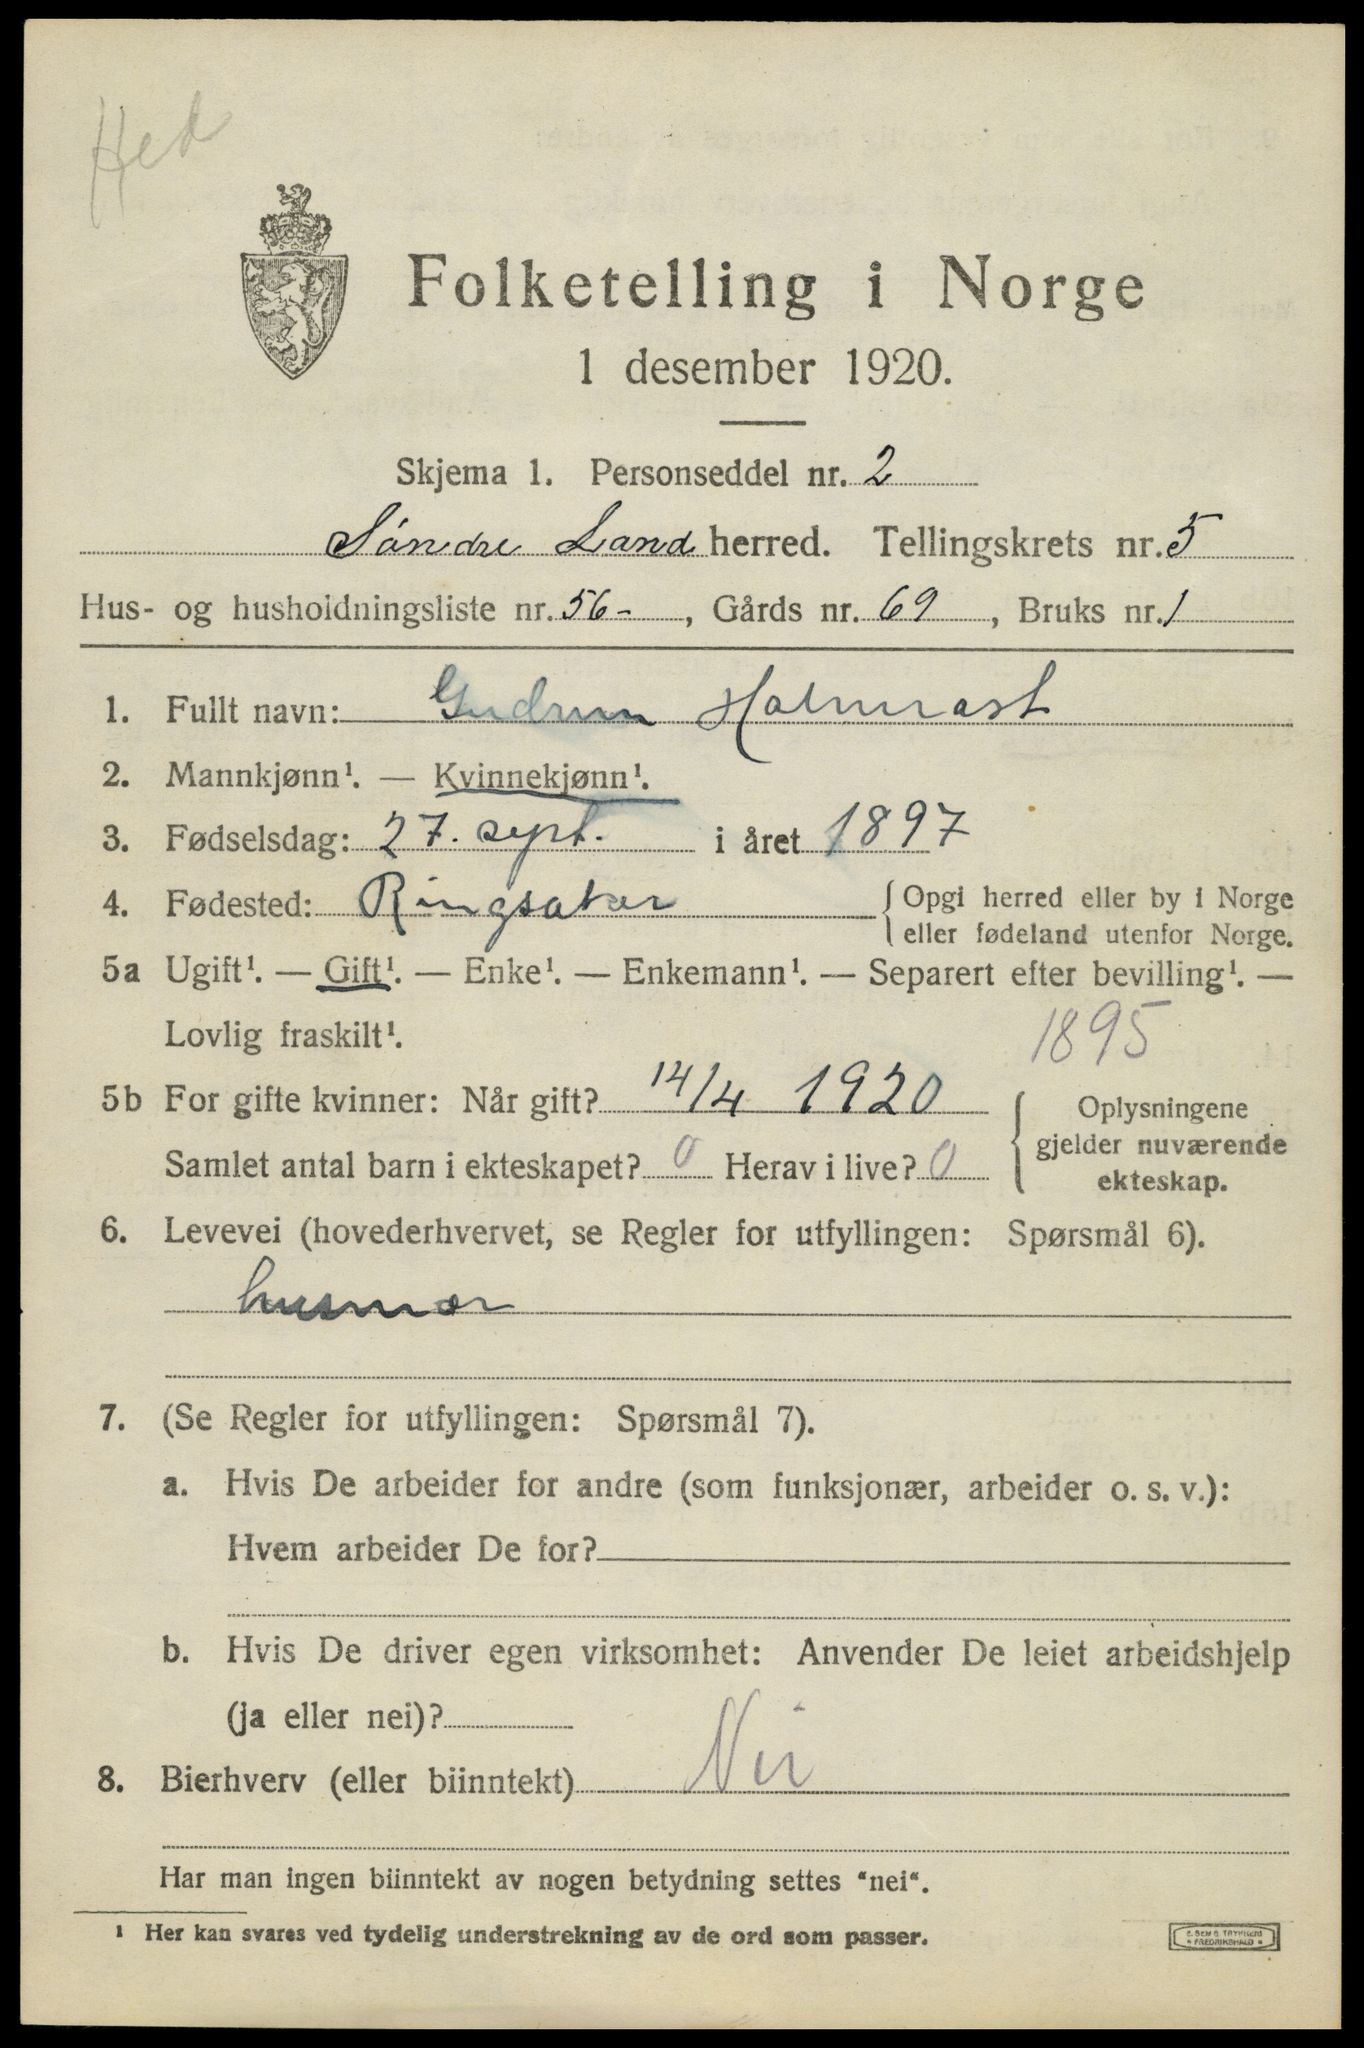 Hed
Folketelling i Norge
1 desember 1920.
Skjema 1. Personseddel nr. 2
Søndre Land herred. Tellingskrets nr. 5
Hus- og husholdningsliste nr. 56- , Gårds nr. 69 , Bruks nr. 1
1. Fullt navn: Gudrun
2. Mannkjønn¹. — Kvinnekjønn¹.
3. Fødselsdag: 27. sept. i året 1897
4. Fødested: Ringsaker { Opgi herred eller by i Norge
eller fødeland utenfor Norge.
5a Ugift¹. — Gift¹. — Enke¹. — Enkemann¹. — Separert efter bevilling¹. —
Lovlig fraskilt¹.
1895
5b For gifte kvinner: Når gift? 14/4 1920
Samlet antal barn i ekteskapet? 0 Herav i live? 0
{ Oplysningene
gjelder nuværende
ekteskap.
6. Levevei (hovederhvervet, se Regler for utfyllingen: Spørsmål 6).
husmor
7. (Se Regler for utfyllingen: Spørsmål 7).
a. Hvis De arbeider for andre (som funksjonær, arbeider o. s. v.):
Hvem arbeider De for?
b. Hvis De driver egen virksomhet: Anvender De leiet arbeidshjelp
(ja eller nei)?
8. Bierhverv (eller biinntekt) Nei
Har man ingen biinntekt av nogen betydning settes "nei".
¹ Her kan svares ved tydelig understrekning av de ord som passer.
E. SEM'S TRYKKERI
* FREDRIKSHALD *